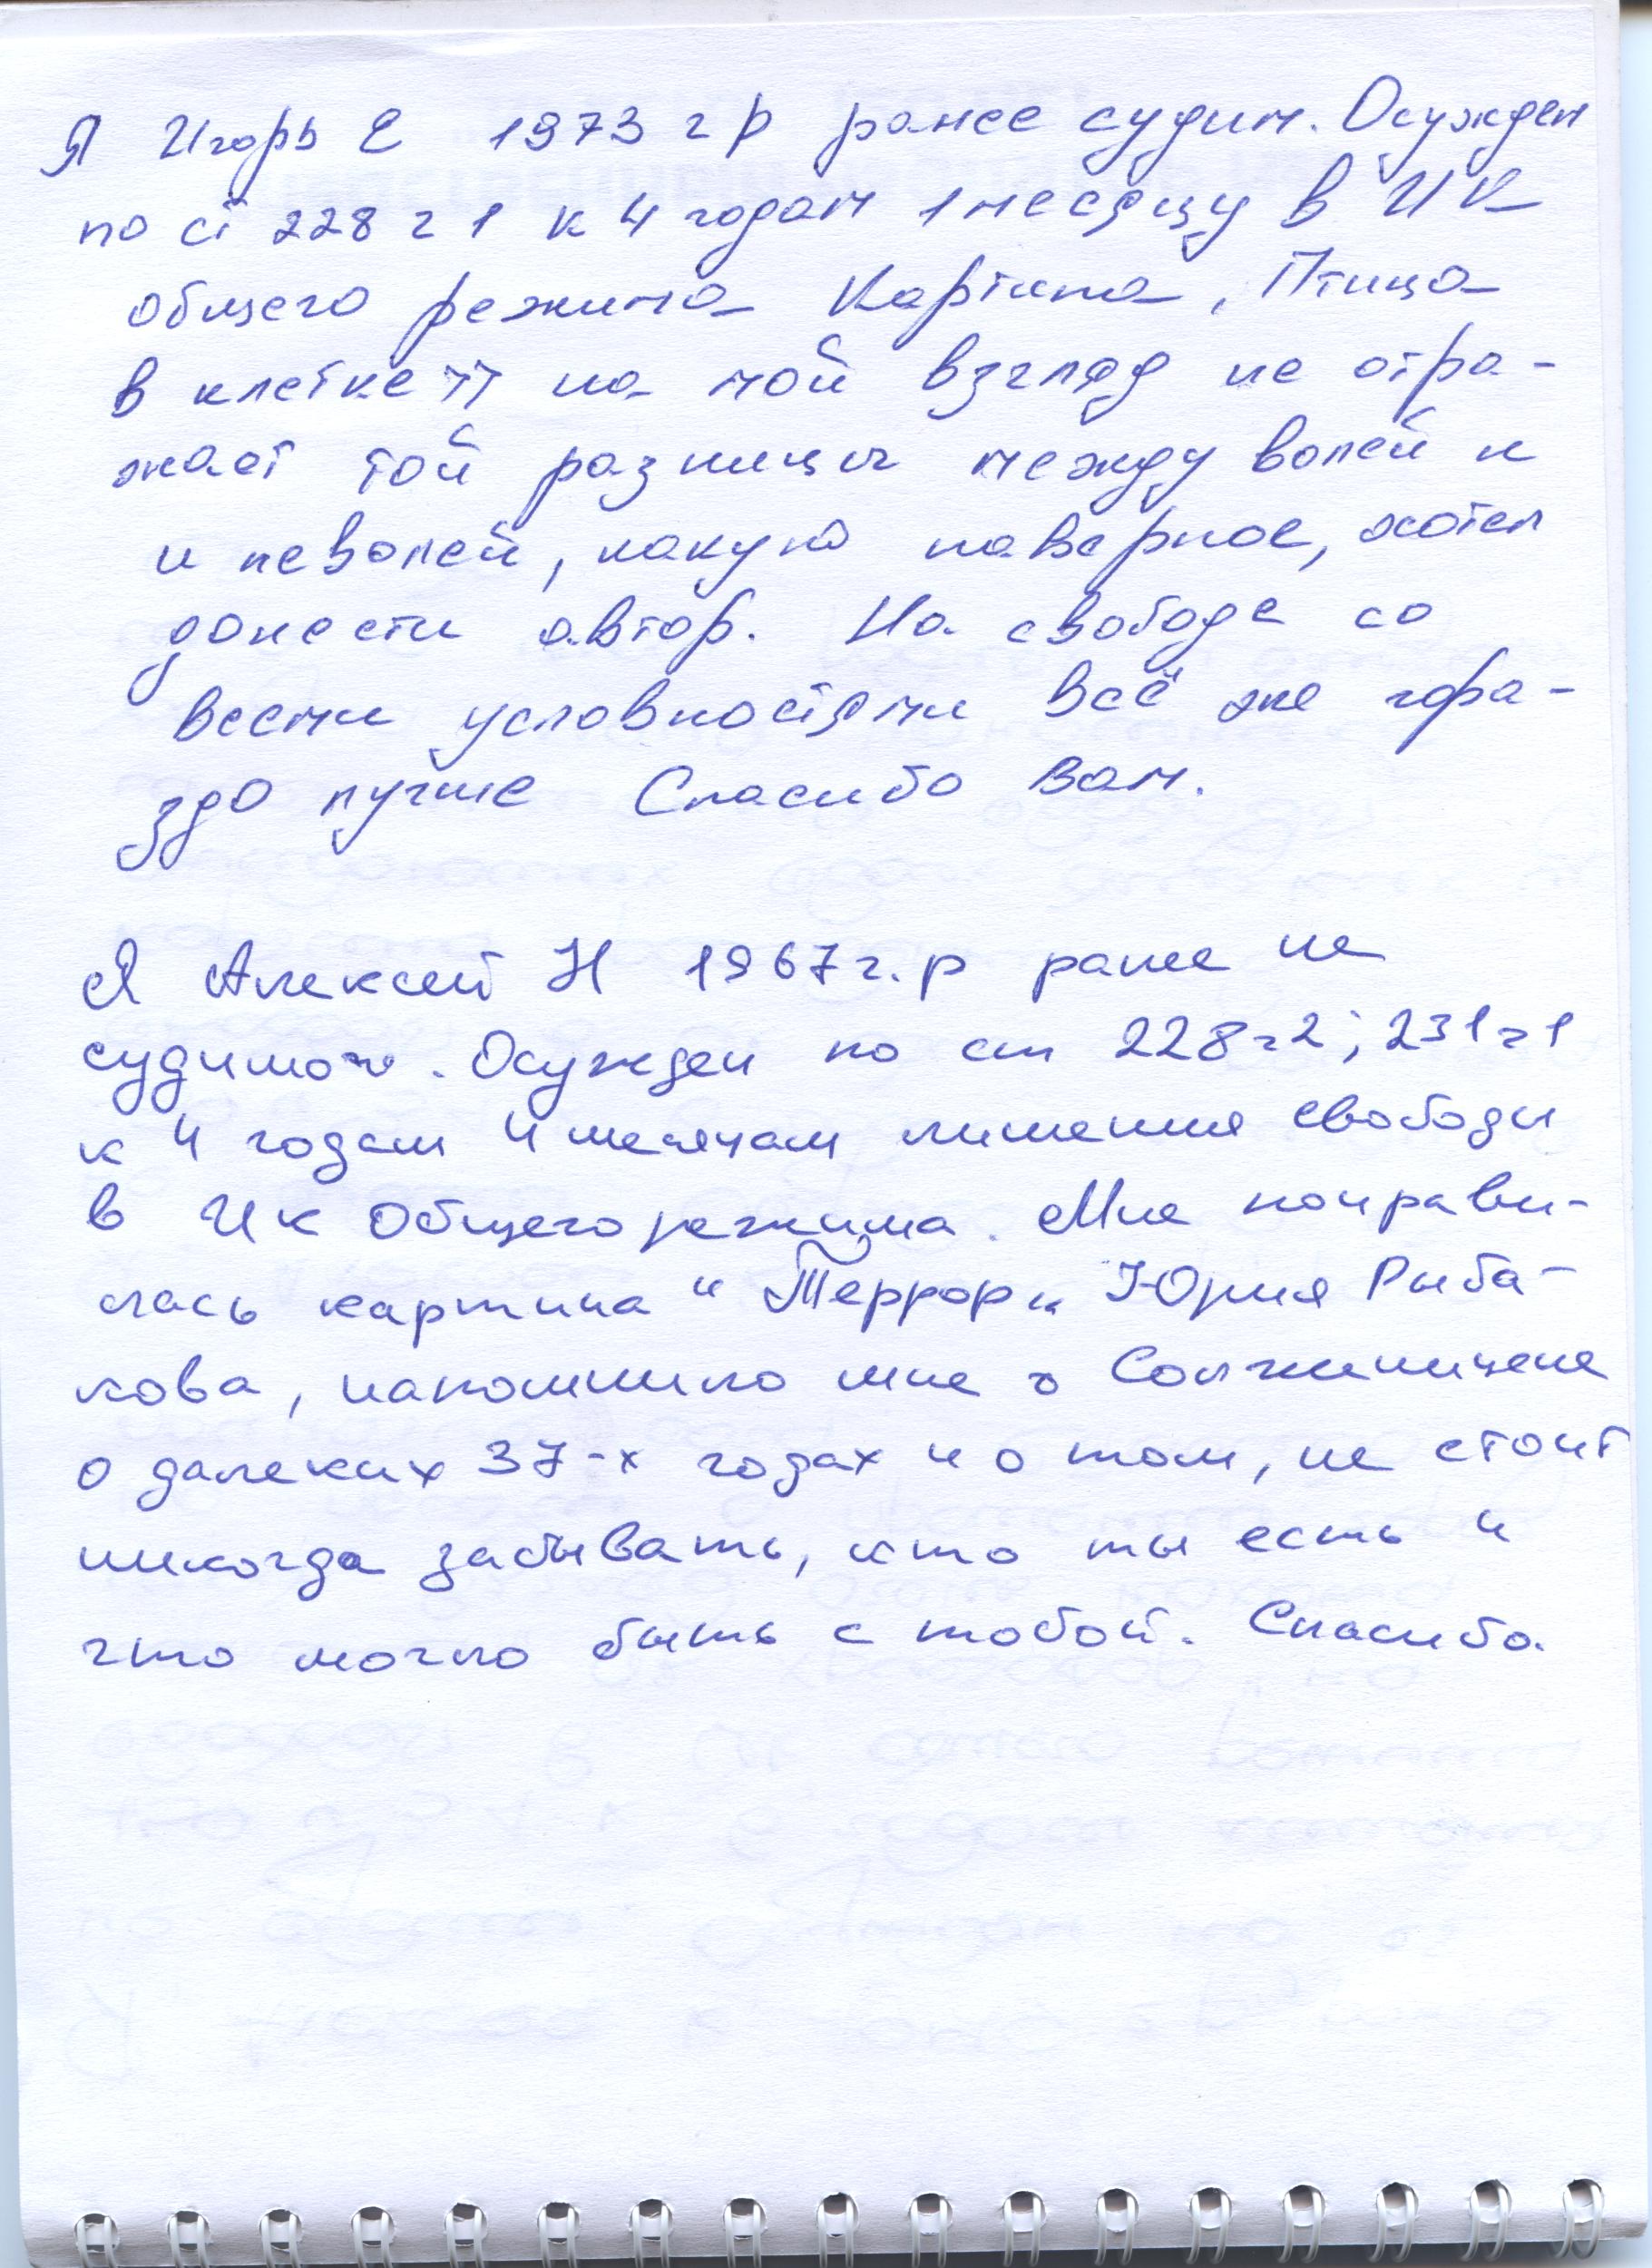 Я Игорь Е 1973 г р ранее судим. Осужден
по ст 228 ч 1 к 4 годам 1 месяцу в ИК
общего режима Картина, Птица
в клетке" на мой взгляд не отра-
жает той разницы между волей и
и неволей, какую наверное, хотел
донести автор. На свободе со
всеми условностями всё же гора-
здо лучше Спасибо Вам.
Я Алексей Н 1967 г. р ранее не
судимой. Осужден по ст 228 ч 2; 231 ч 1
к 4 годам 4 месячам лишения свободы
в Ик Общего режима. Мне понрави-
лась картина "Террор" Юрия Рыба-
кова, напомнило мне о Солженицене
о далеких 37-х годах и о том, не стоит
никогда забывать, кто ты есть и
что могло быть с тобой. Спасибо.